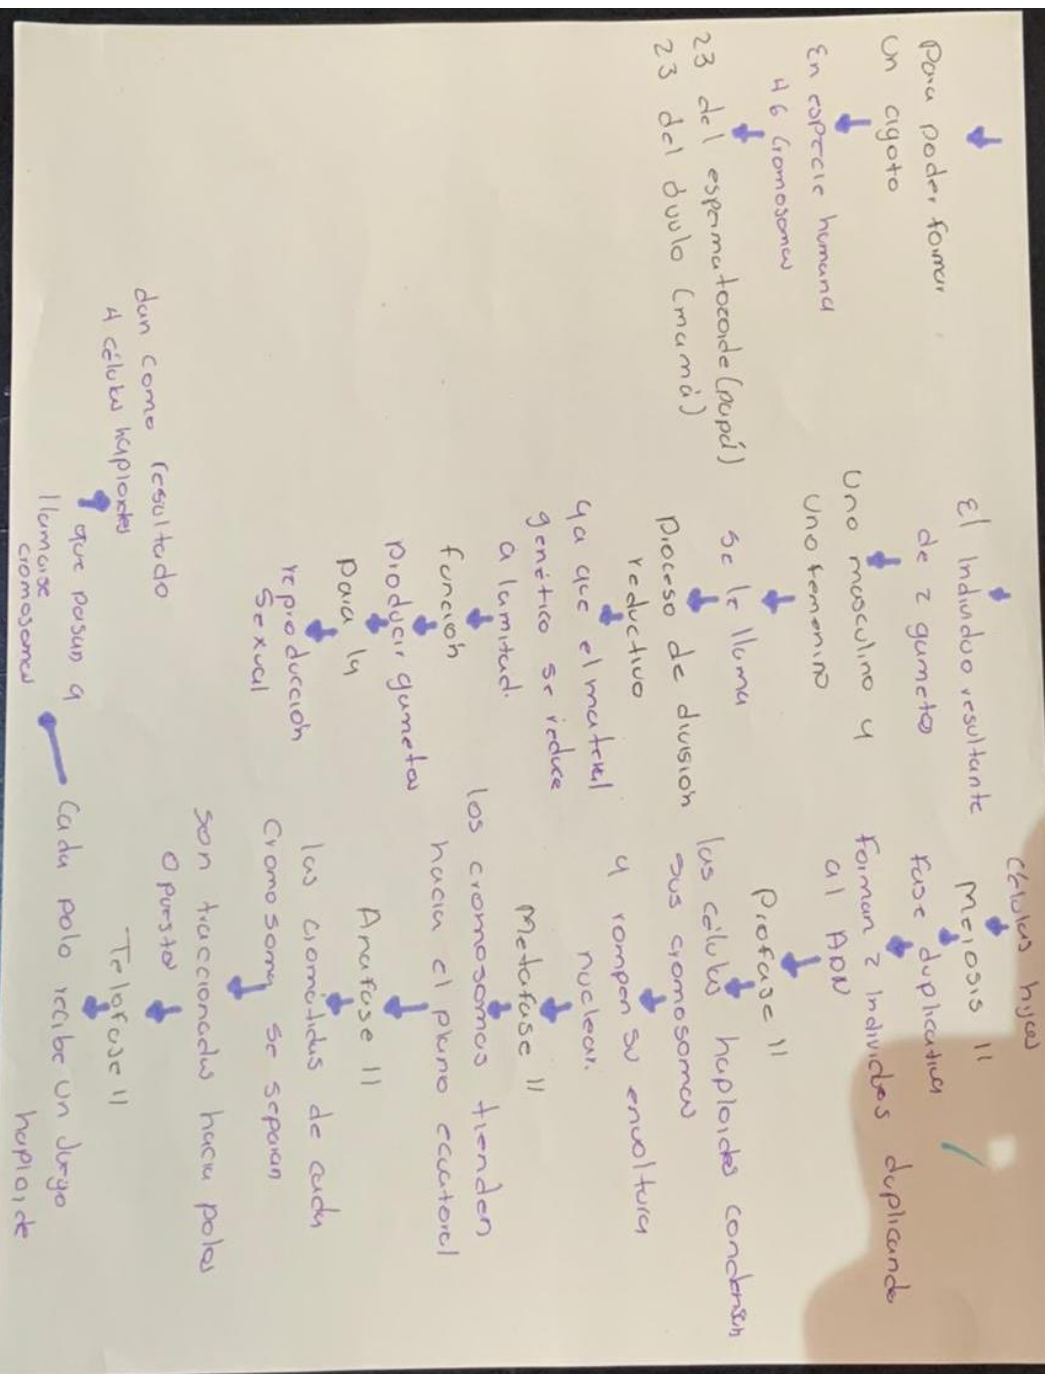 Para poder formar
un cigoto
En especie humana
46 cromosomas
23 del espermatozoide (papá)
23 del óvulo (mamá)
El individuo resultante
de 2 gametos
Uno masculino y
uno femenino
se le llama
Proceso de división
reductivo
ya que el material
genético se reduce
a la mitad.
función
producir gametos
para la
reproducción
sexual
células hijas
Meiosis II
fase duplicativa
forman 2 individuos duplicando
al ADN
Profase II
las células haploides condensan
sus cromosomas
y rompen su envoltura
nuclear.
Metafase II
los cromosomas tienden
hacia el plano ecuatorial
Anafase II
las cromátidas de cada
cromosoma se separan
son traccionadas hacia polos
opuestos
Telofase II
Cada polo recibe un juego
haploide
que pasan a
llamarse
cromosomas
dan como resultado
4 células haploides